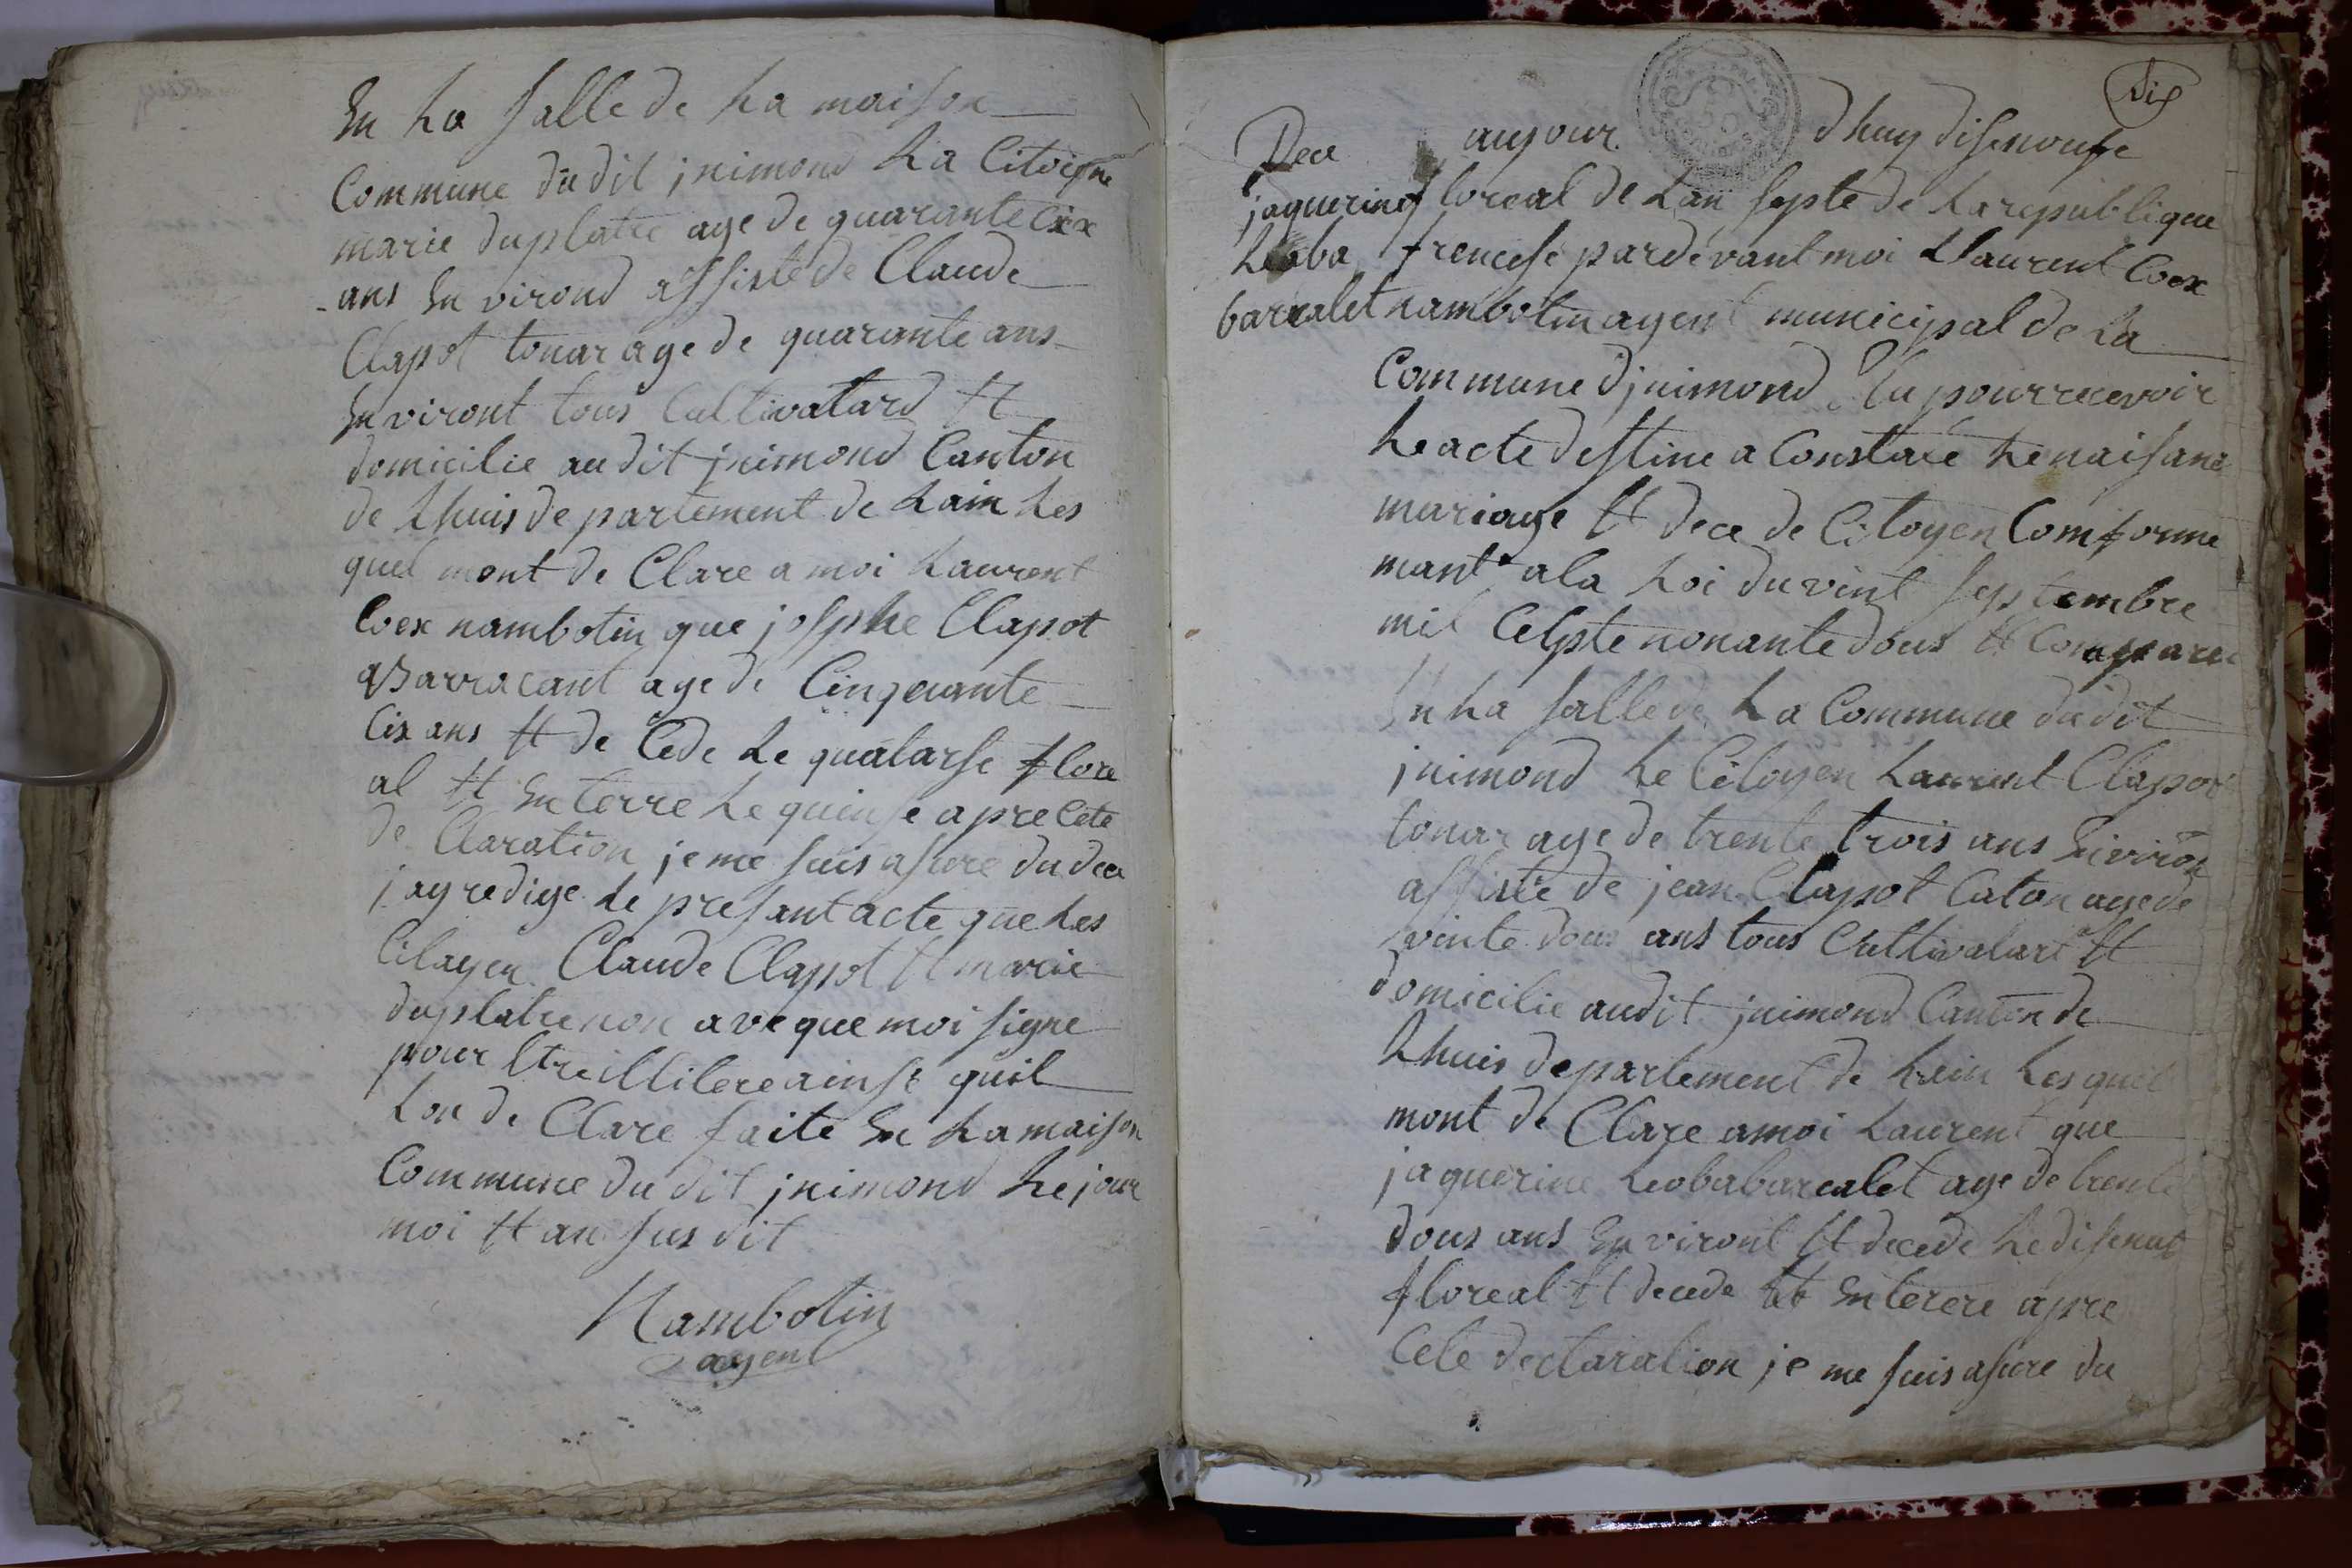 En La salle de La maison
Commune du dit jnimond La Citoiene
marie duplatre age de quarante cix
ans En virond assisté de Claude
Clapot touar age de quarante ans
En viront tous Cultivatard Et
domicilie au dit jnimond Canton
de Lhuis de partement de Lain Les
quel mont de Clare a moi Laurent
Coex nambotin que josphe Clapot
Barracant age de Cinquante
Cix ans Et de Cede Le quatarse flore
al Et En terre Le quinse apre Cete
de Claration je me suis asure du dece
jay redige Le presant acte que Les
Citayen Claude Clapot Et marie
duplatre non aveque moi signe
pour Etre illitere ainsi quil
Lon de Clare faite En La maison
Commune du dit jnimond Le jour
moi Et an sus dit
Nambotin
agent
dix
aujour dhuy disenoufe
Dece
jaquerine floreal de Lan septe de La republique
Leoba frencese pardevant moi Laurent Coex
barcalet nambotin agent municipal de La
Commune djnimond Elu pour recevoir
Le acte destine a Constaté Le naisanc
mariage Et dece de Citoyen Comforme
mant ala Loi du vint septembre
mil Cepte nonante dous Et Compare
En La salle de La Commune du dit
jnimond Le Citoyen Laurent Clapot
touar age de trente trois ans Environ
assiste de jean Clapot Caton age de
vinte dous ans tous Cultivatart Et
domicilie audit jnimond Canton de
Lhuis departement de Lain Les quel
mont de Clare amoi Laurent que
jaquerine Leobabarcalet age de trente
dous ans En viront Et decede Le disenut
floreal Et decede Et Enterere apre
Cete declaration je me suis asure du